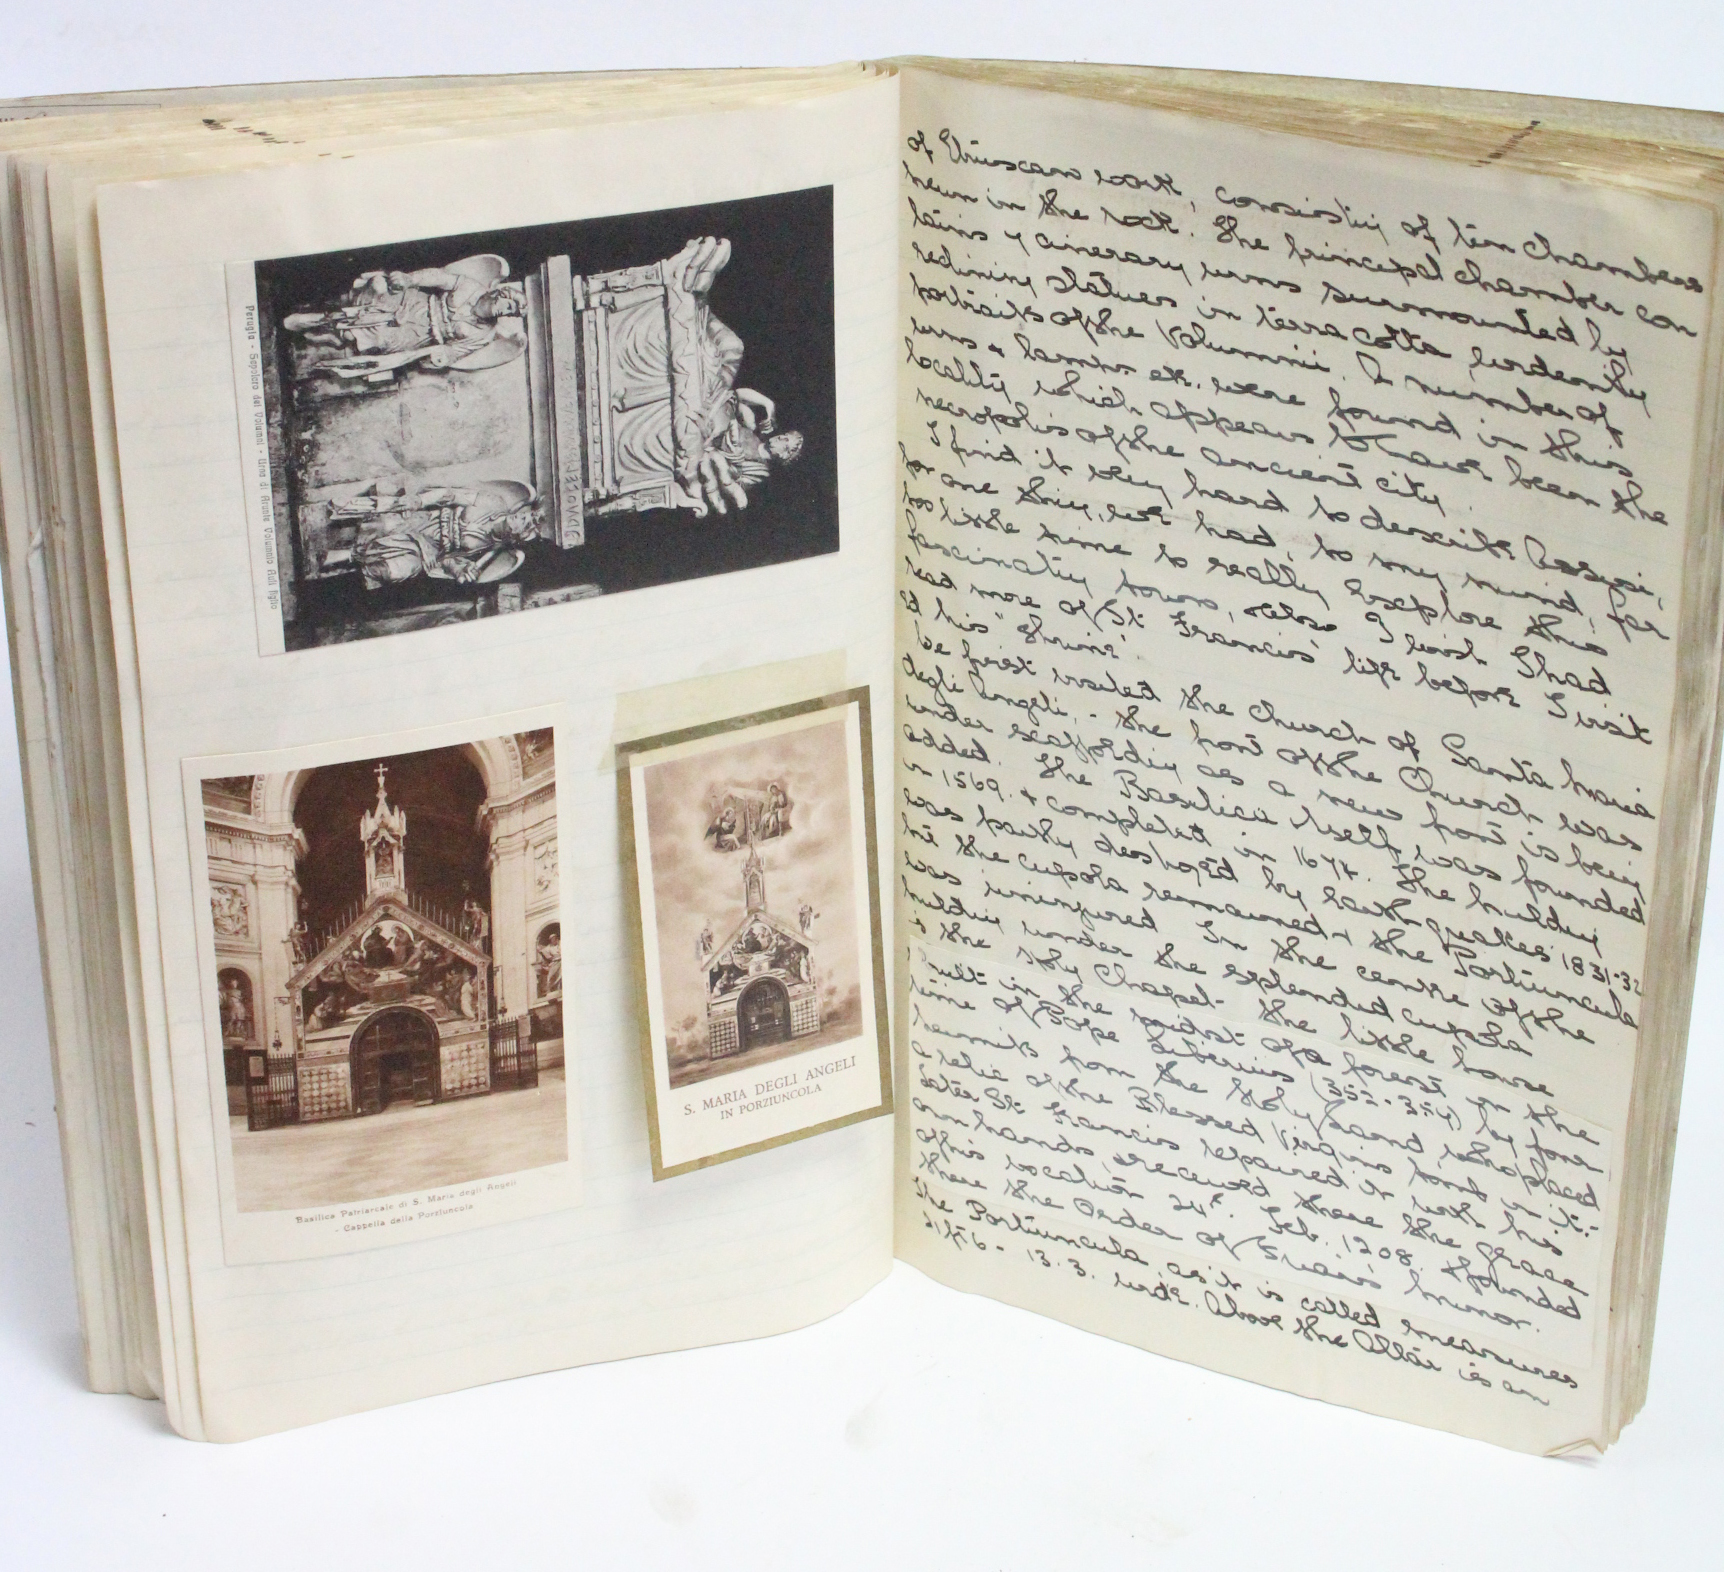 Perugia - Sepolcro dei Volumni - Urna di Arunte Volumnio Auli figlio
Basilica Patriarcale di S. Maria degli Angeli
- Cappella della Porziuncola
S. MARIA DEGLI ANGELI
IN PORZIUNCOLA
of Etruscan work, consisting of ten chambers
hewn in the rock. The principal chamber con
tains 7 cinerary urns surmounted by
reclining statues in terra cotta evidently
portraits of the Volumnii. A number of
urns & lamps etc. were found in this
locality which appears to have been the
necropolis of the ancient city.
I find it very hard to describe Assisi,
for one thing, we had, to my mind, far
too little time to really explore this
fascinating town, & also I wish I had
read more of St. Francis' life before I visit
ed his "shrine".
We first visited the Church of Santa Maria
degli Angeli, - the front of the Church was
under scaffolding as a new front is being
added. The Basilica itself was founded
in 1569. & completed in 1674. The building
was partly destroyed by earthquakes 1831-32
but the cupola remained & the Portiuncula
was uninjured In the centre of the
building under the splendid cupola
is the Holy Chapel - the little house
built in the midst of a forest in the
time of Pope Liberius (352-354) by four
hermits from the Holy Land, who placed
a relic of the Blessed Virgins tomb in it:
Later St. Francis repaired it with his
own hands, & received there the grace
of his vocation 24th. Feb. 1208. & founded
there the Order of Friars minor.
The Portiuncula, as it is called measures
13.3. wide. Above the Altar is an